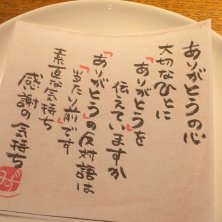 ありがとうの心
大切なひとに
「ありがとう」を
伝えていますか
「ありがとう」の反対語は
「当たり前」です
素直な気持ち
感謝の気持ち